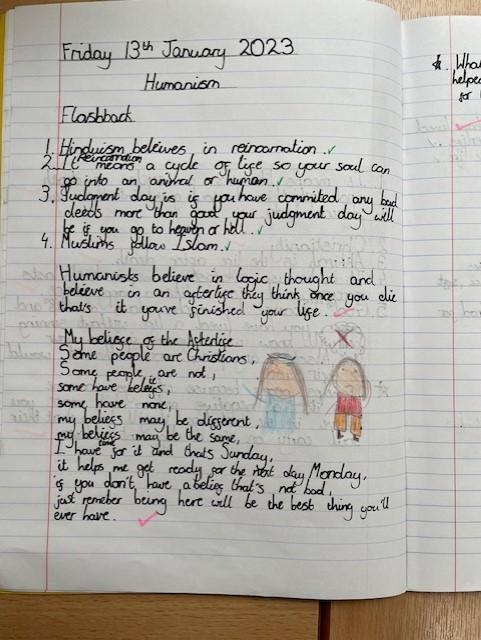 Friday 13th January 2023
Humanism
Flashback
1. Hinduism beleives in reincarnation.
2. It Reincarnation means a cycle of life so your soul can
go into an animal or human.
3. Judgment day is if you have commited any bad
deeds more than good your judgment day will
be if you go to heaven or hell.
4. Muslims follow Islam.
Humanists believe in logic thought and
believe in an afterlife they think once you die
that's it youve finished your life.
My beliefe of the Afterlife
Some people are Christians,
Some people are not,
some have beliefs,
some have none,
my beliefs may be different,
my beliefs may be the same,
I have time for it and thats Sunday,
it helps me get ready for the next day Monday,
if you don't have a belief that's not bad,
just remeber being here will be the best thing you'll
ever have.
helped
for